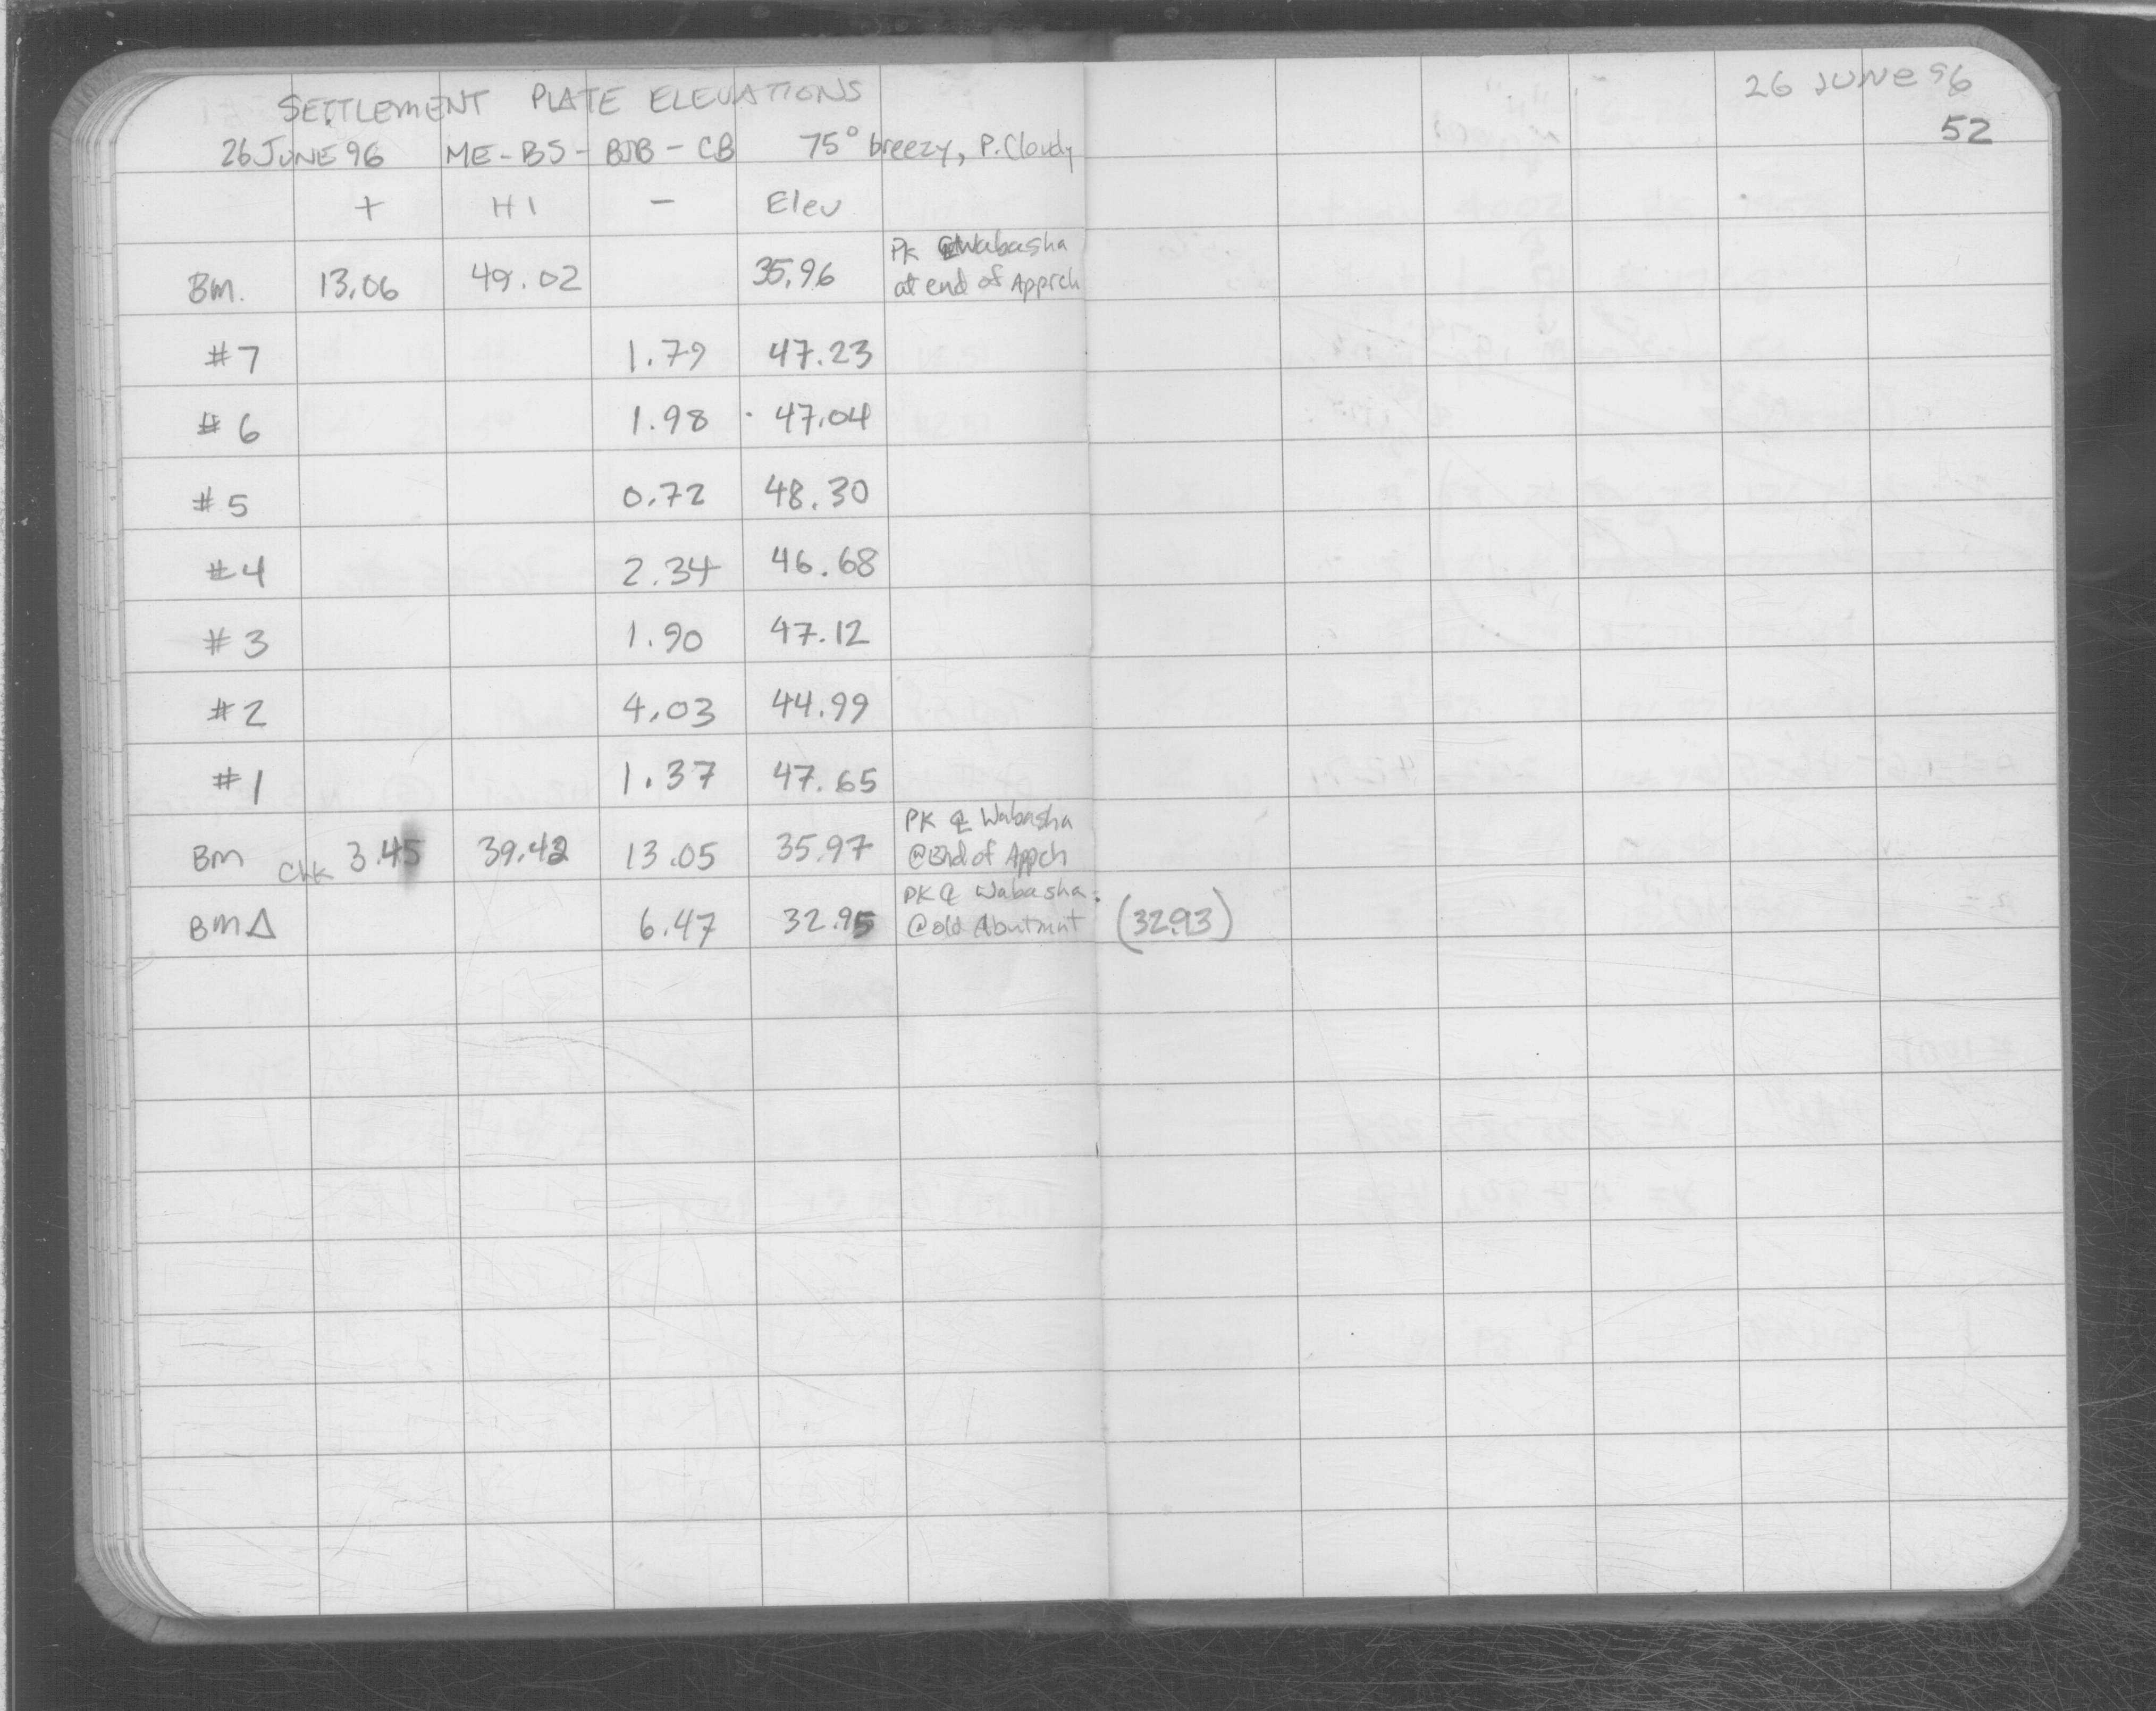 SETTLEMENT PLATE ELEVATIONS
26 JUNE 96 ME-BS-BJB-CB 75° breezy, P. Cloudy
26 JUNE 96
52
+ HI - Elev
BM. 13.06 49.02 35.96 PK ℄ Wabasha
at end of Apprch
#7 1.79 47.23
#6 1.98 47.04
#5 0.72 48.30
#4 2.34 46.68
#3 1.90 47.12
#2 4.03 44.99
#1 1.37 47.65
BM chk 3.45 39.42 13.05 35.97 PK ℄ Wabasha
@End of Appch
BM Δ 6.47 32.95 PK ℄ Wabasha
@old Abutmnt (32.93)